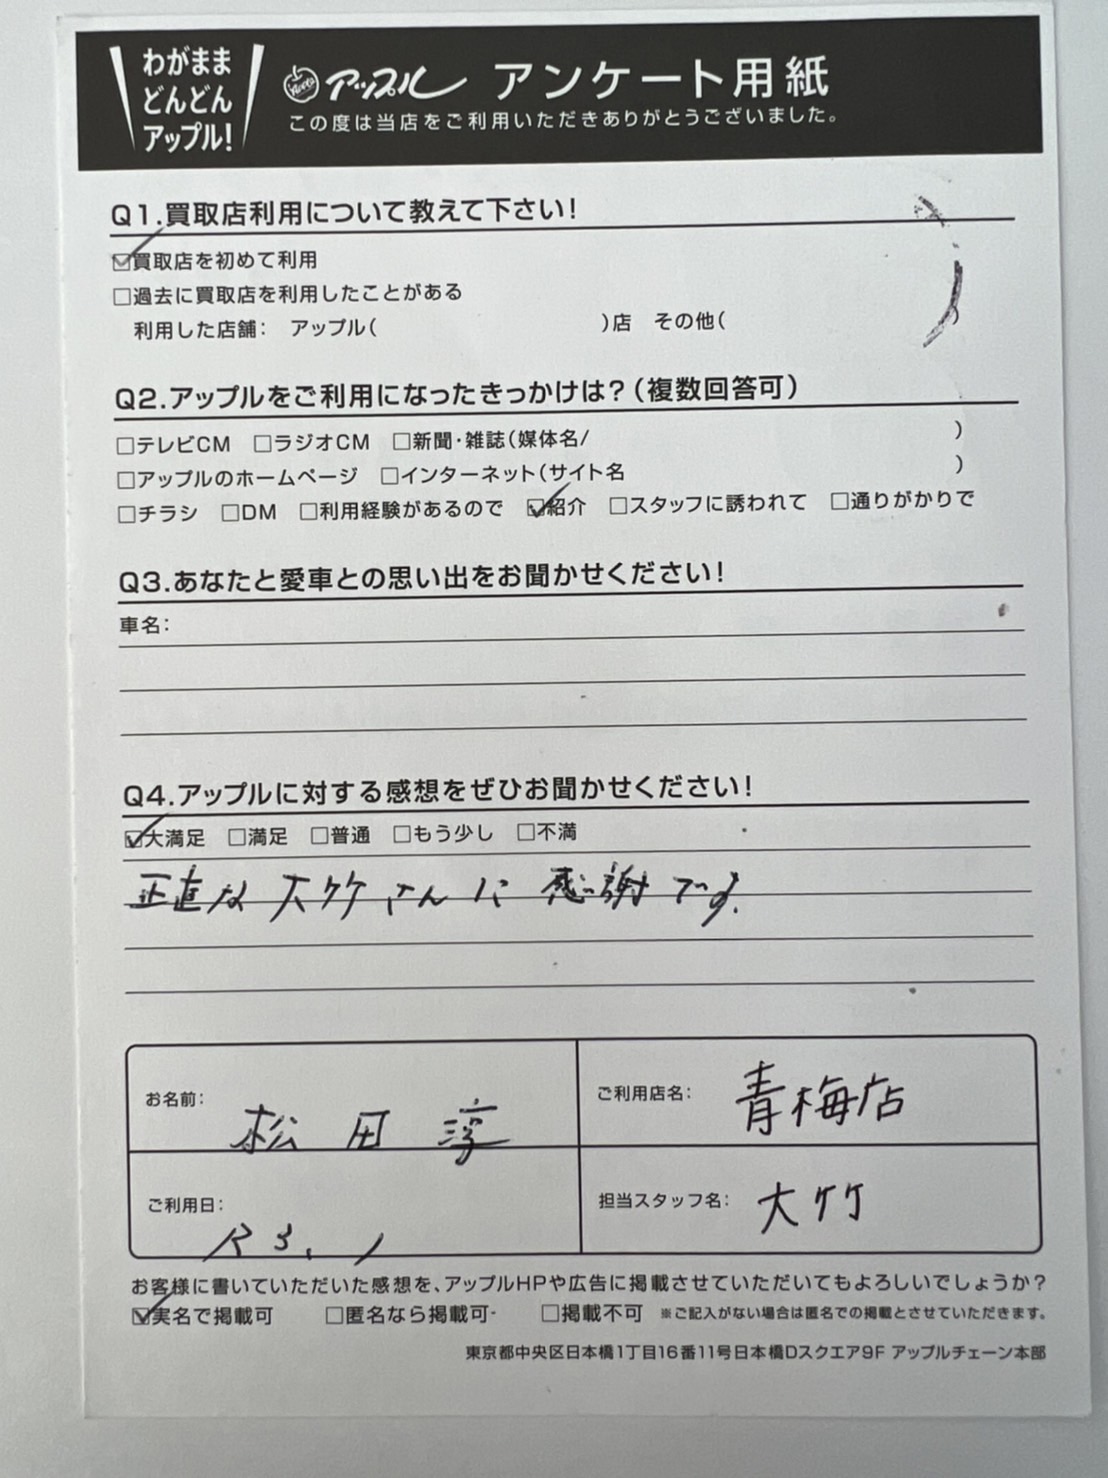 わがまま
どんどん
アップル!
アップル アンケート用紙
この度は当店をご利用いただきありがとうございました。
Q1.買取店利用について教えて下さい!
☑買取店を初めて利用
□過去に買取店を利用したことがある
利用した店舗: アップル( )店 その他( )
Q2.アップルをご利用になったきっかけは?(複数回答可)
□テレビCM □ラジオCM □新聞・雑誌(媒体名/ )
□アップルのホームページ □インターネット(サイト名 )
□チラシ □DM □利用経験があるので ☑紹介 □スタッフに誘われて □通りがかりで
Q3.あなたと愛車との思い出をお聞かせください!
車名:
Q4.アップルに対する感想をぜひお聞かせください!
☑大満足 □満足 □普通 □もう少し □不満
正直な大竹さんに感謝です.
お名前: 松田 淳
ご利用店名: 青梅店
ご利用日: R3.1
担当スタッフ名: 大竹
お客様に書いていただいた感想を、アップルHPや広告に掲載させていただいてもよろしいでしょうか?
☑実名で掲載可 □匿名なら掲載可 □掲載不可 ※ご記入がない場合は匿名での掲載とさせていただきます。
東京都中央区日本橋1丁目16番11号日本橋Dスクエア9F アップルチェーン本部